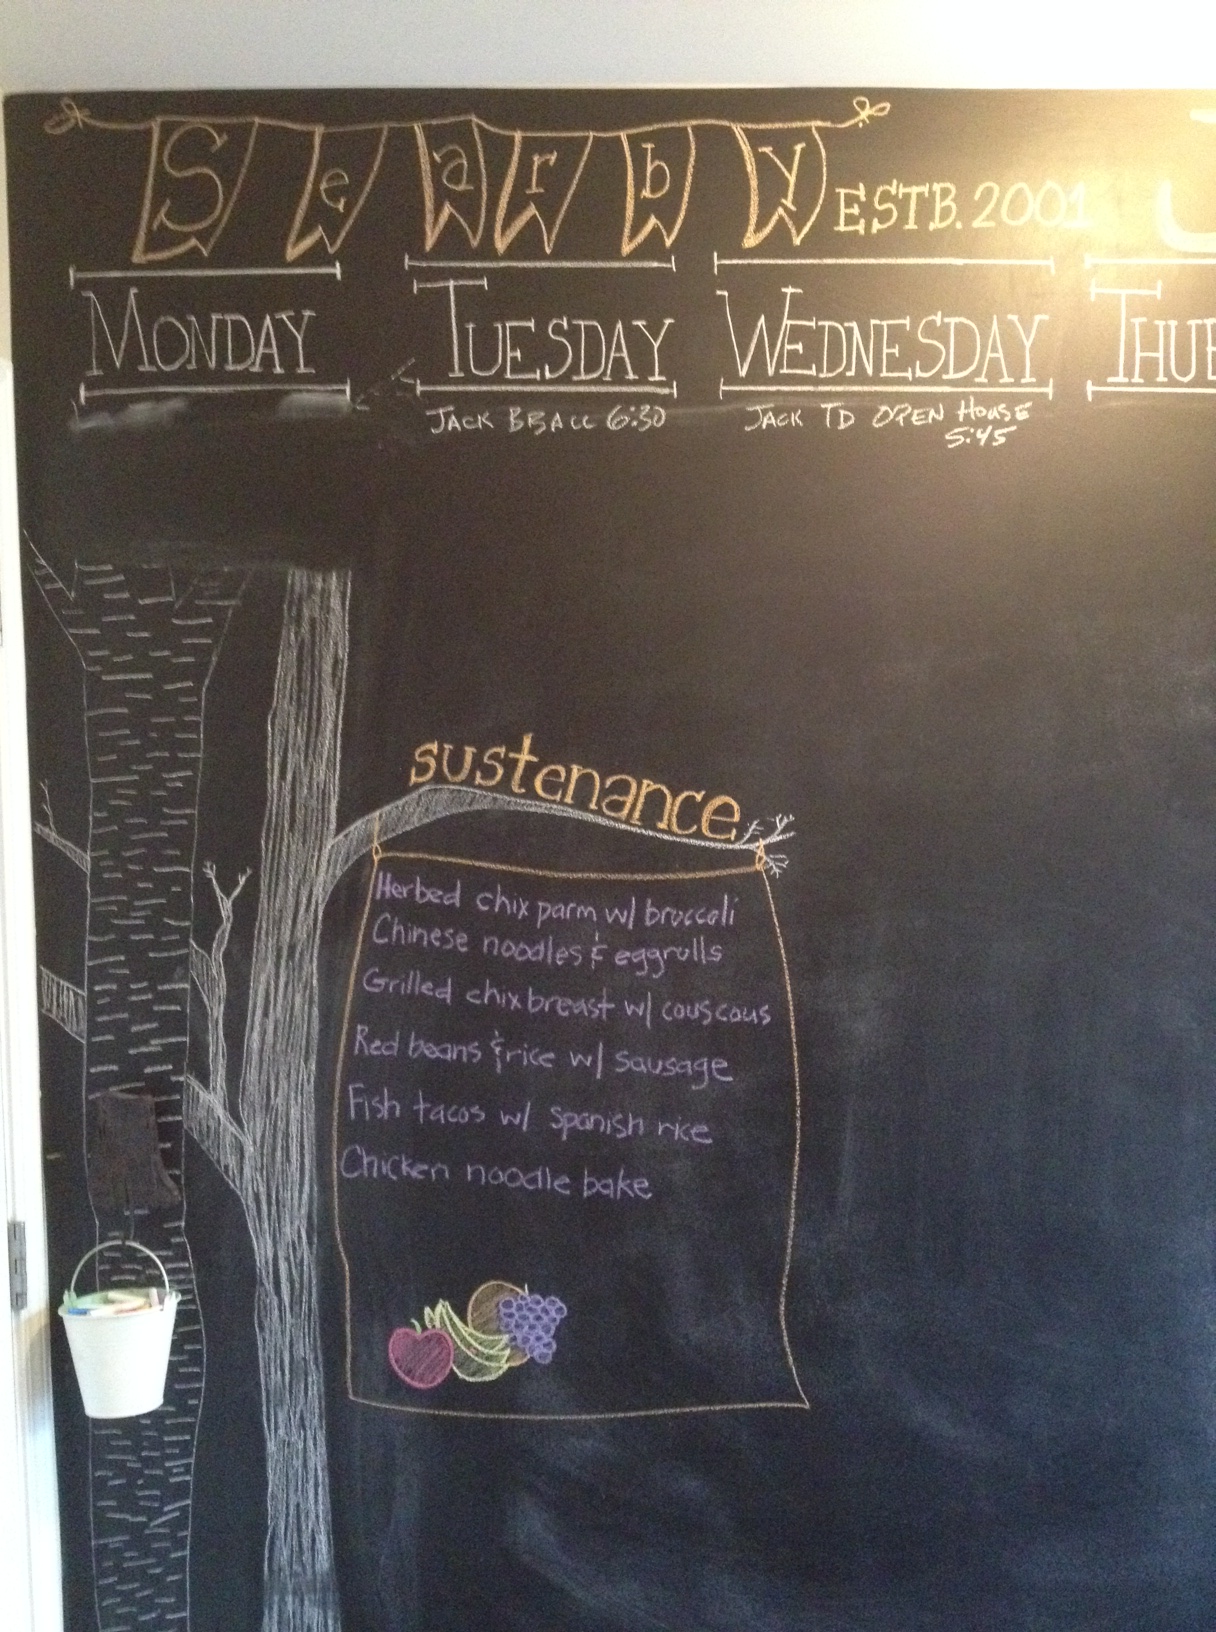 Searby ESTB. 2001
MONDAY
TUESDAY
WEDNESDAY
THUR
JACK BBALL 6:30
JACK TD OPEN HOUSE
5:45
sustenance
Herbed chix parm w/ broccoli
Chinese noodles & eggrolls
Grilled chix breast w/ couscous
Red beans & rice w/ sausage
Fish tacos w/ spanish rice
Chicken noodle bake